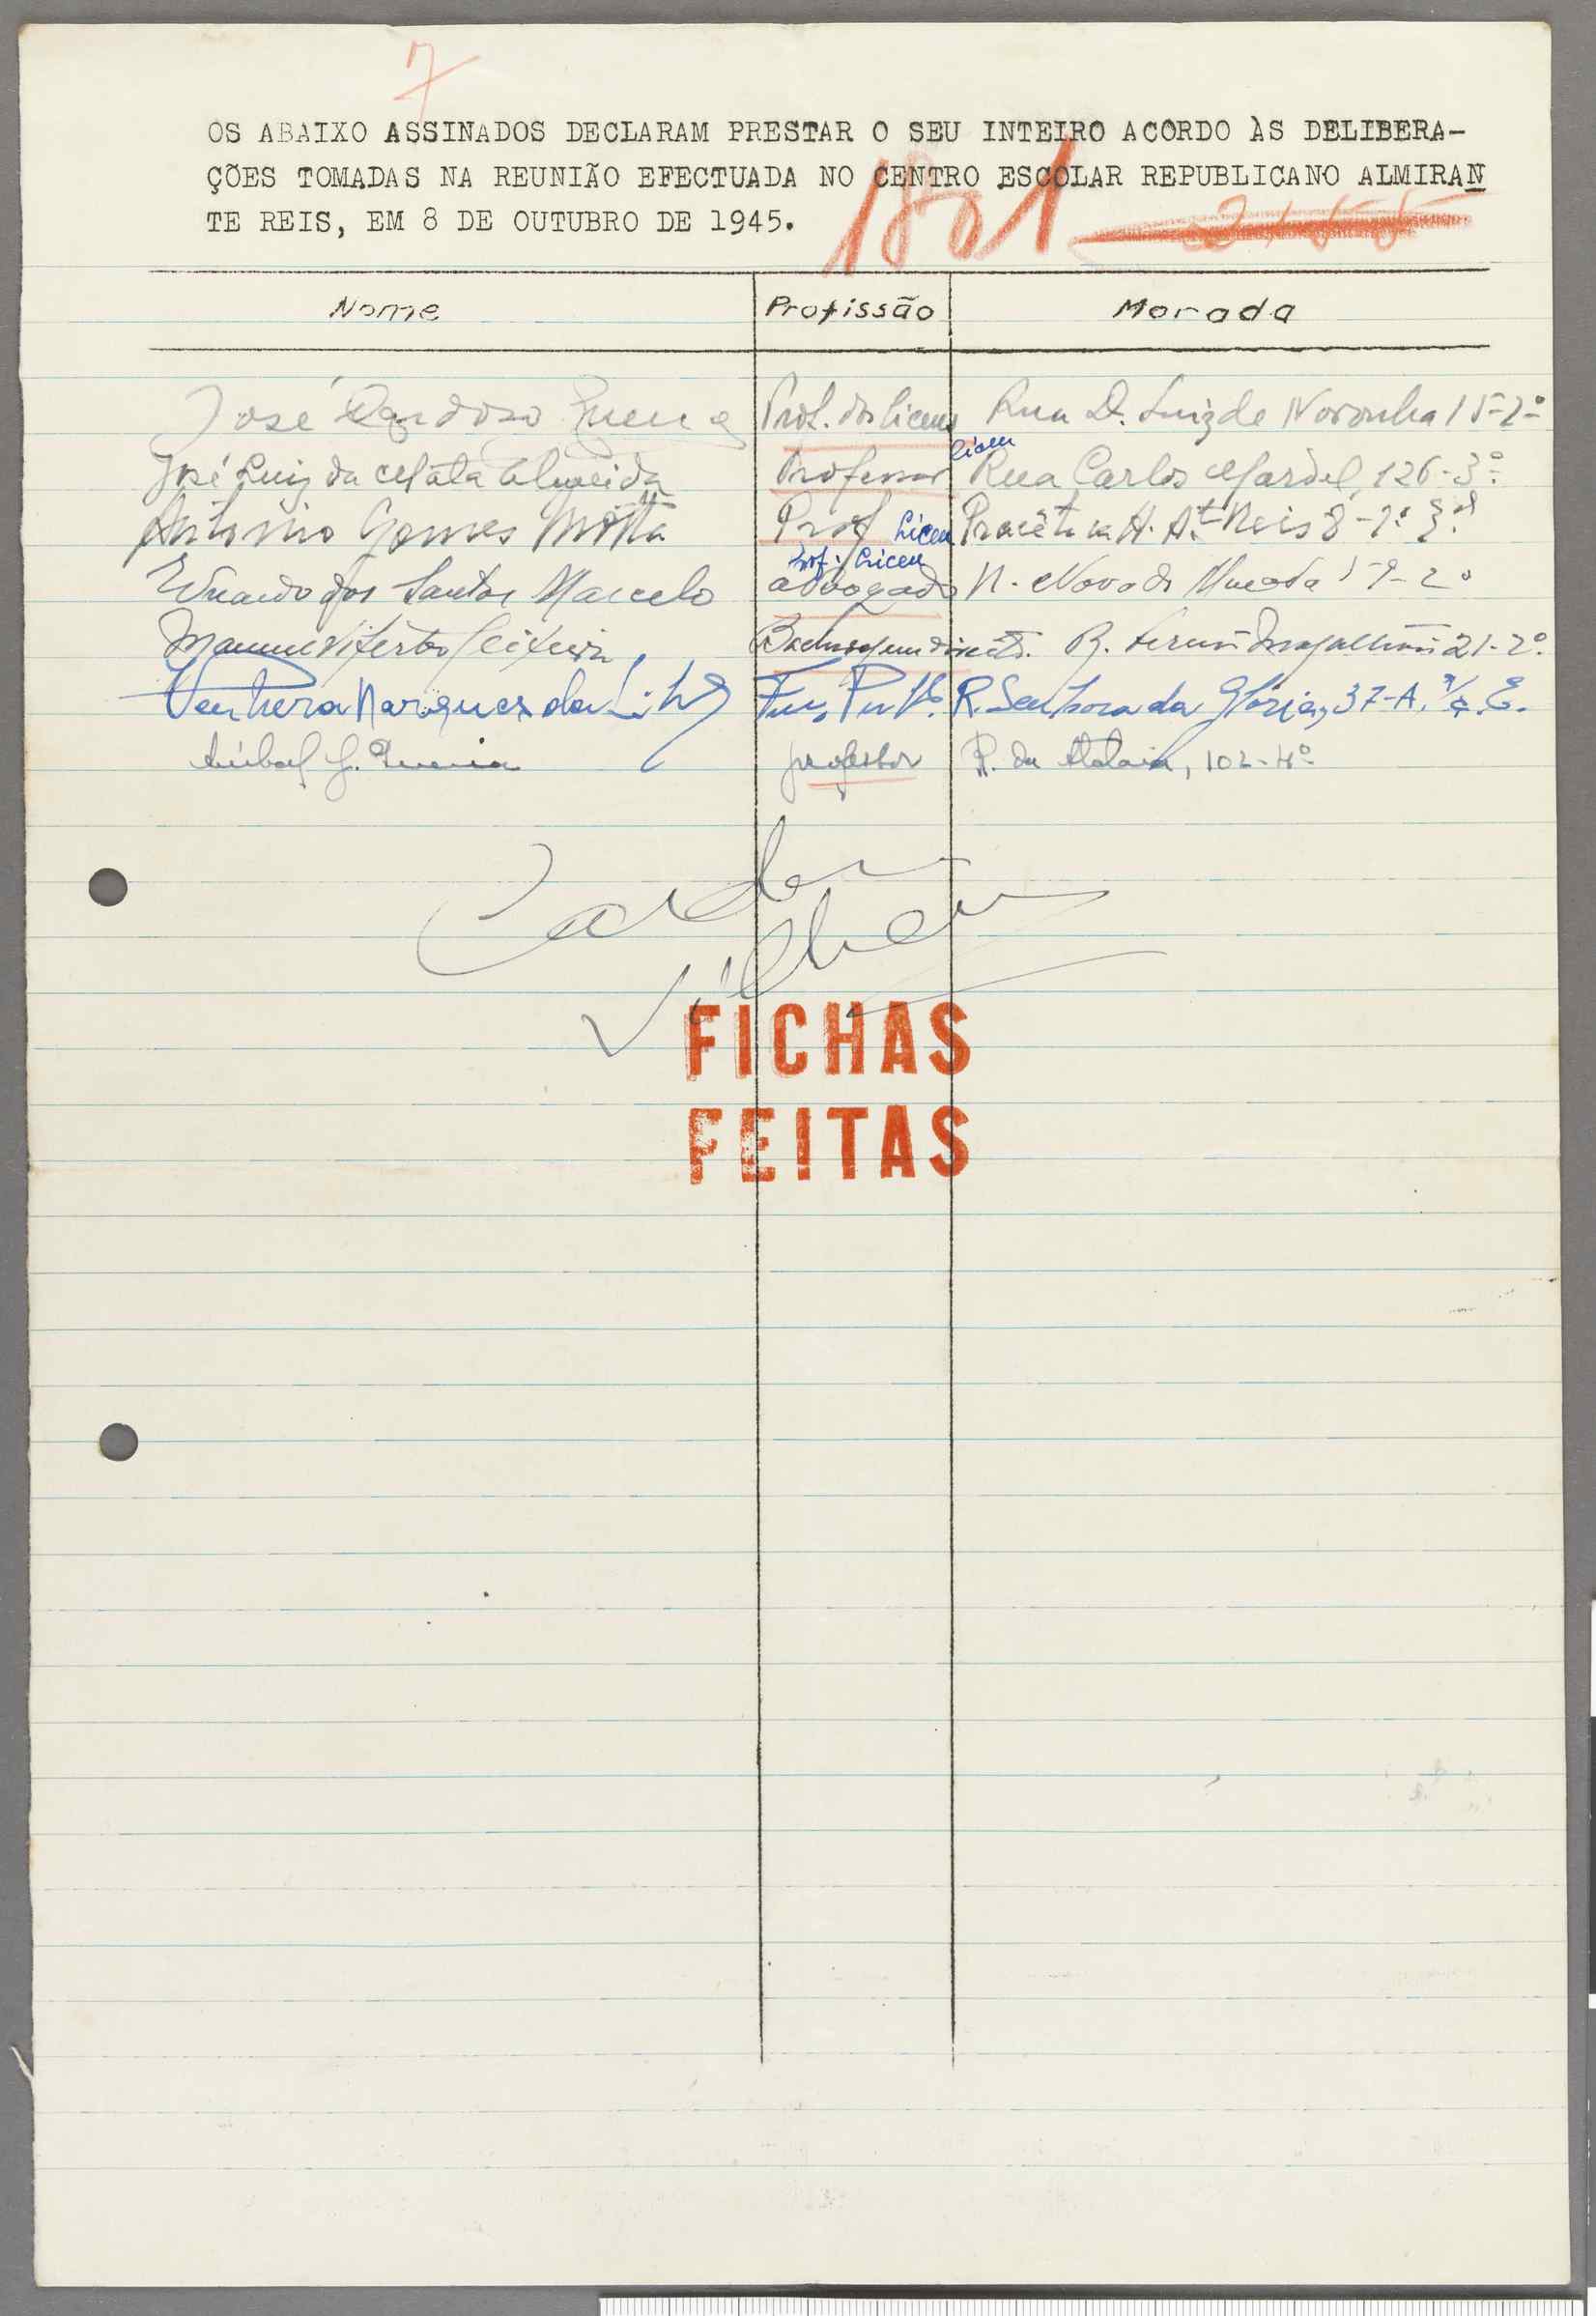 7
OS ABAIXO ASSINADOS DECLARAM PRESTAR O SEU INTEIRO ACORDO ÀS DELIBERA-
ÇÕES TOMADAS NA REUNIÃO EFECTUADA NO CENTRO ESCOLAR REPUBLICANO ALMIRAN
TE REIS, EM 8 DE OUTUBRO DE 1945.
1801
Nome Profissão Morada
José Cardoso Prof. dos liceus Rua D. Luiz de Noronha 15-2º
liceu
José Luiz da Mata Almeida Professor Rua Carlos Mardel, 126-3º
António Gomes Motta Prof Liceu Pracêta A. Aᵗᵉ Reis 8-
Prof. Liceu
Eduardo dos Santos Marcelo advogado R. Nova da 19-2º
Manuel Teixeira Bacharel em direito. R. 21-2º
Ventura Marques da Func. Pub. R. Senhora da Glória, 37-A, r/c. E.
Aníbal professor R. da Atalaia, 102-4º
FICHAS
FEITAS